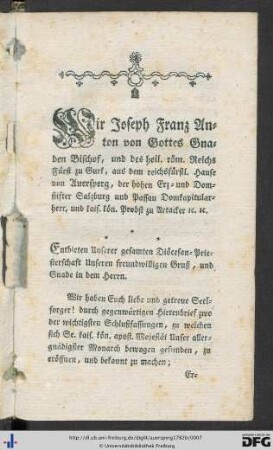 Wir Joseph Franz An-
ton von Gottes Gna-
den Bischof, und des heil. röm. Reichs
Fürst zu Gurk, aus dem reichsfürstl. Hause
von Auersperg, der hohen Erz- und Dom-
stifter Salzburg und Passau Domkapitular-
herr, und kais. kön. Probst zu Artacker ꝛc. ꝛc.
Entbieten Unserer gesamten Diöcesan-Prie-
sterschaft Unseren freundwilligen Gruß, und
Gnade in dem Herrn.
Wir haben Euch liebe und getreue Seel-
sorger! durch gegenwärtigen Hirtenbrief zwo
der wichtigsten Schlußfassungen, zu welchen
sich Se. kais. kön. apost. Majestät Unser aller-
gnädigster Monarch bewogen gefunden, zu
eröffnen, und bekannt zu machen;
Ere-
http://dl.ub.uni-freiburg.de/diglit/auersperg1782b/0007
© Universitätsbibliothek Freiburg
gefördert durch die
DFG